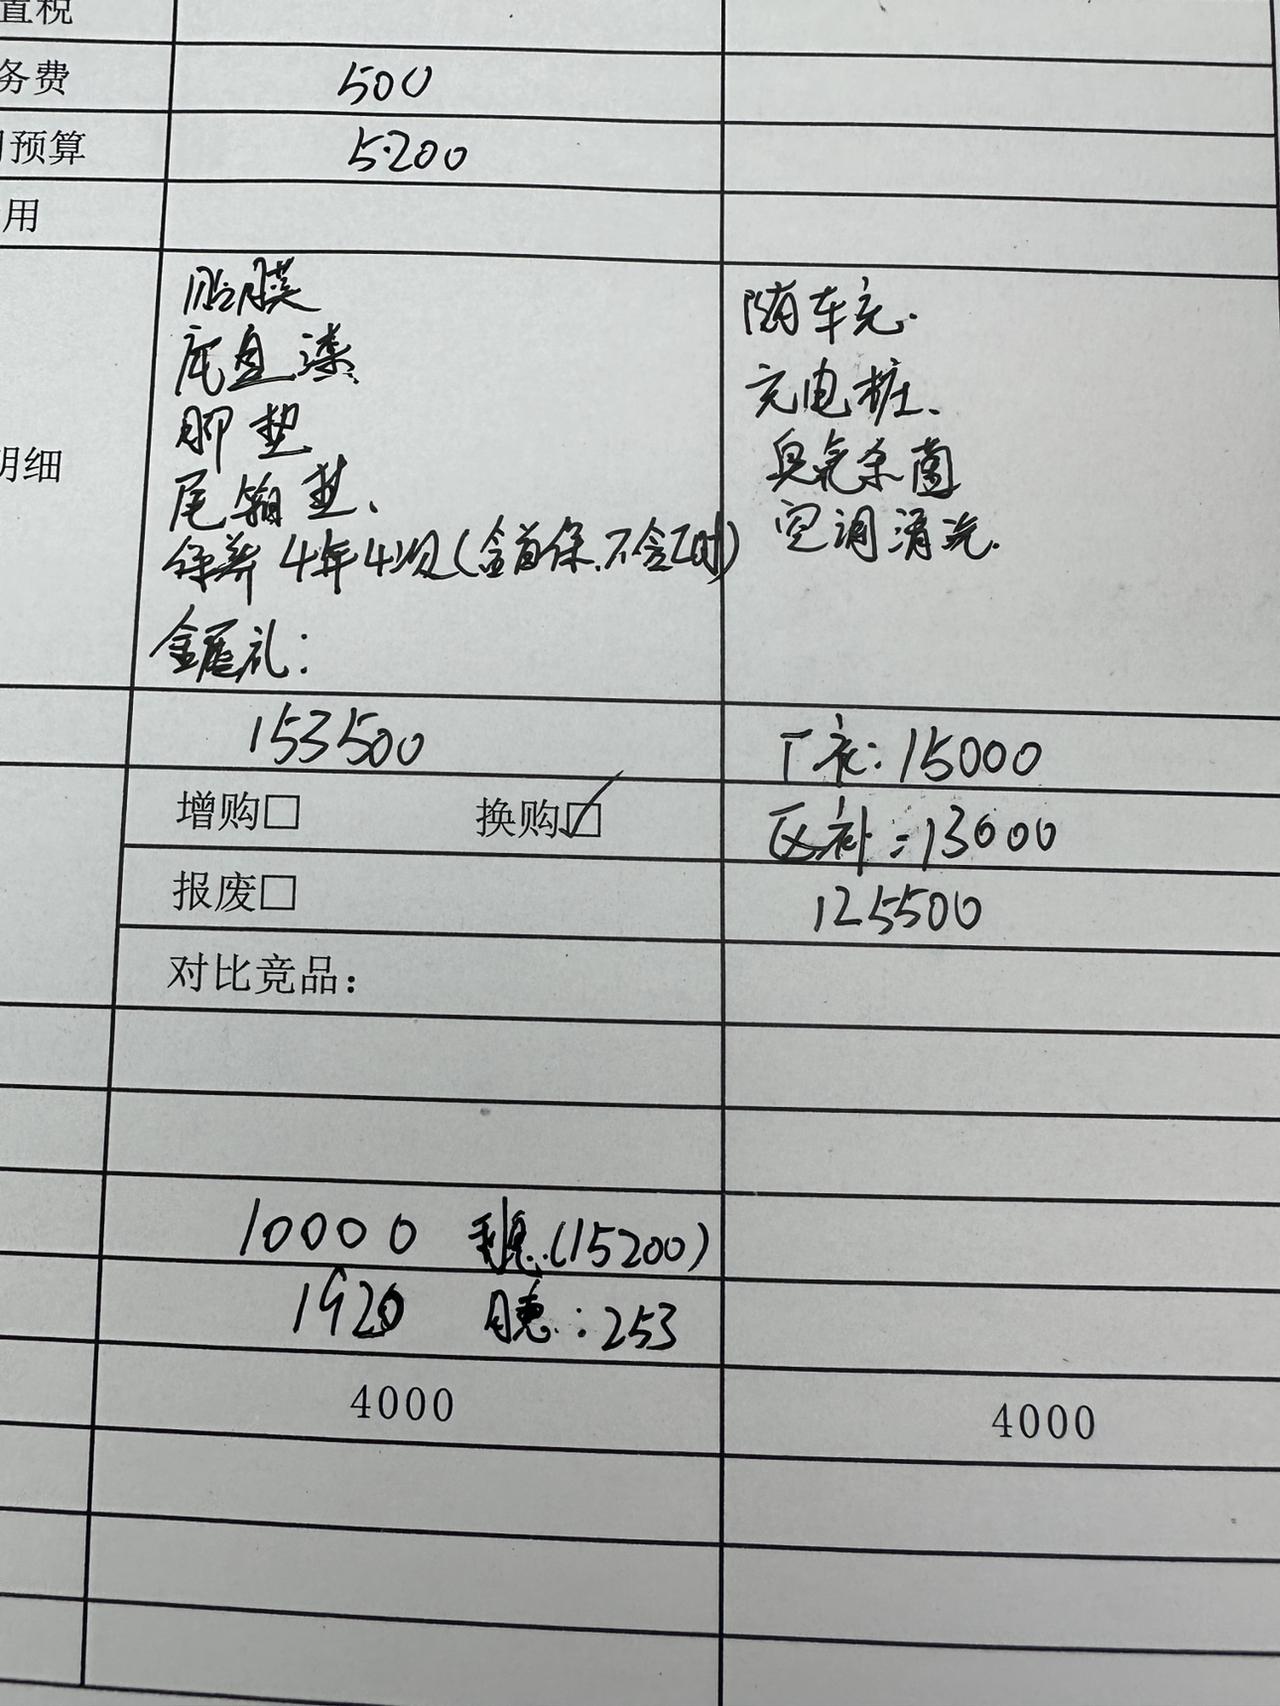 置税
务费 500
预算 5200
用
明细
贴膜
底盘漆
脚垫
尾箱垫、
保养 4年4次(含首保、不含工时)
金展礼:
随车充.
充电桩、
臭氧杀菌
空调清洗.
153500 厂补:15000
增购□ 换购☑ 区补:13000
报废□ 125500
对比竞品：
10000 利息(15200)
1920 月息:253
4000 4000